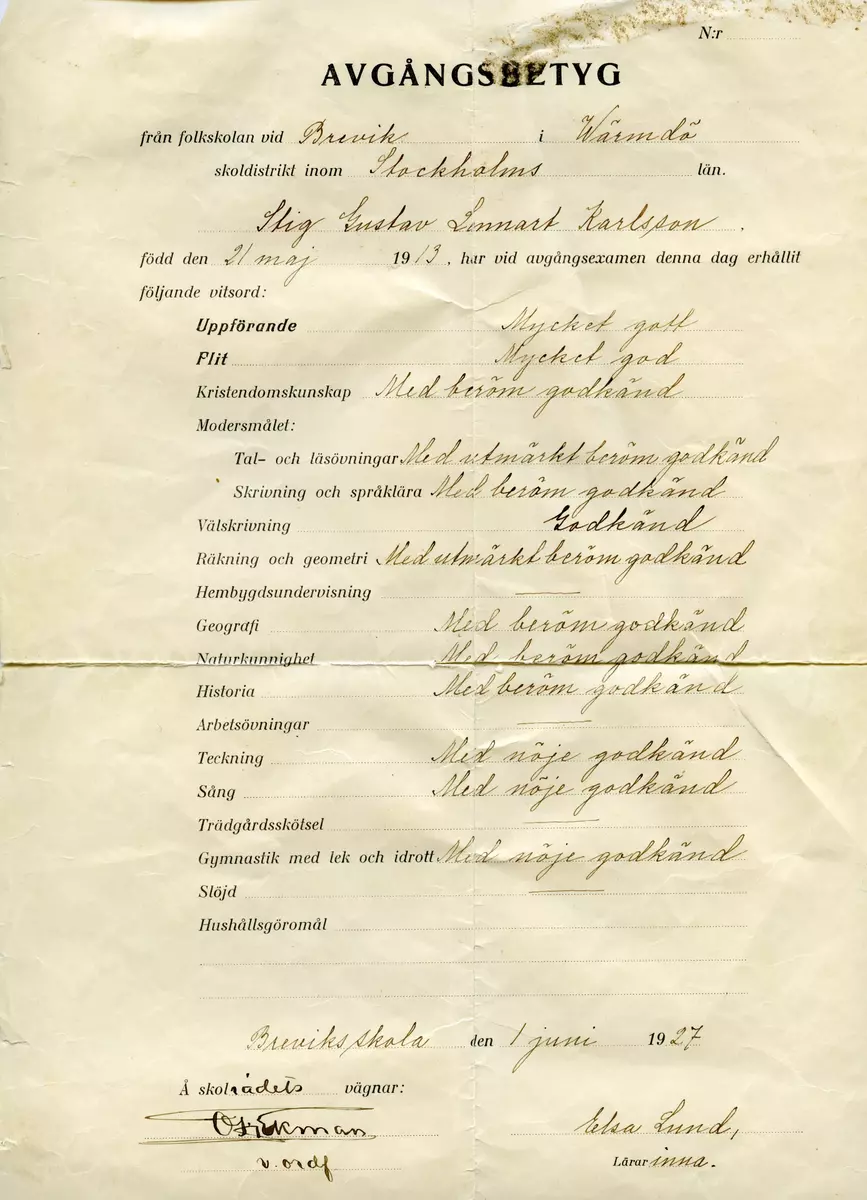 N:r
AVGÅNGSBETYG
från folkskolan vid Brevik i Wärmdö
skoldistrikt inom Stockholms län.
Stig Gustav Lennart Karlsson.
född den 21 maj 1913, har vid avgångsexamen denna dag erhållit
följande vitsord:
Uppförande Mycket gott
Flit Mycket god
Kristendomskunskap Med beröm godkänd
Modersmålet:
Tal- och läsövningar Med utmärkt beröm godkänd
Skrivning och språklära Med beröm godkänd
Välskrivning Godkänd
Räkning och geometri Med utmärkt beröm godkänd
Hembygdsundervisning —
Geografi Med beröm godkänd
Naturkunnighet Med beröm godkänd
Historia Med beröm godkänd
Arbetsövningar —
Teckning Med nöje godkänd
Sång Med nöje godkänd
Trädgårdsskötsel —
Gymnastik med lek och idrott Med nöje godkänd
Slöjd —
Hushållsgöromål
Breviks skola den 1 juni 1927
Å skolrådets vägnar:
Ekman Elsa Lund,
v. ordf Lärarinna.